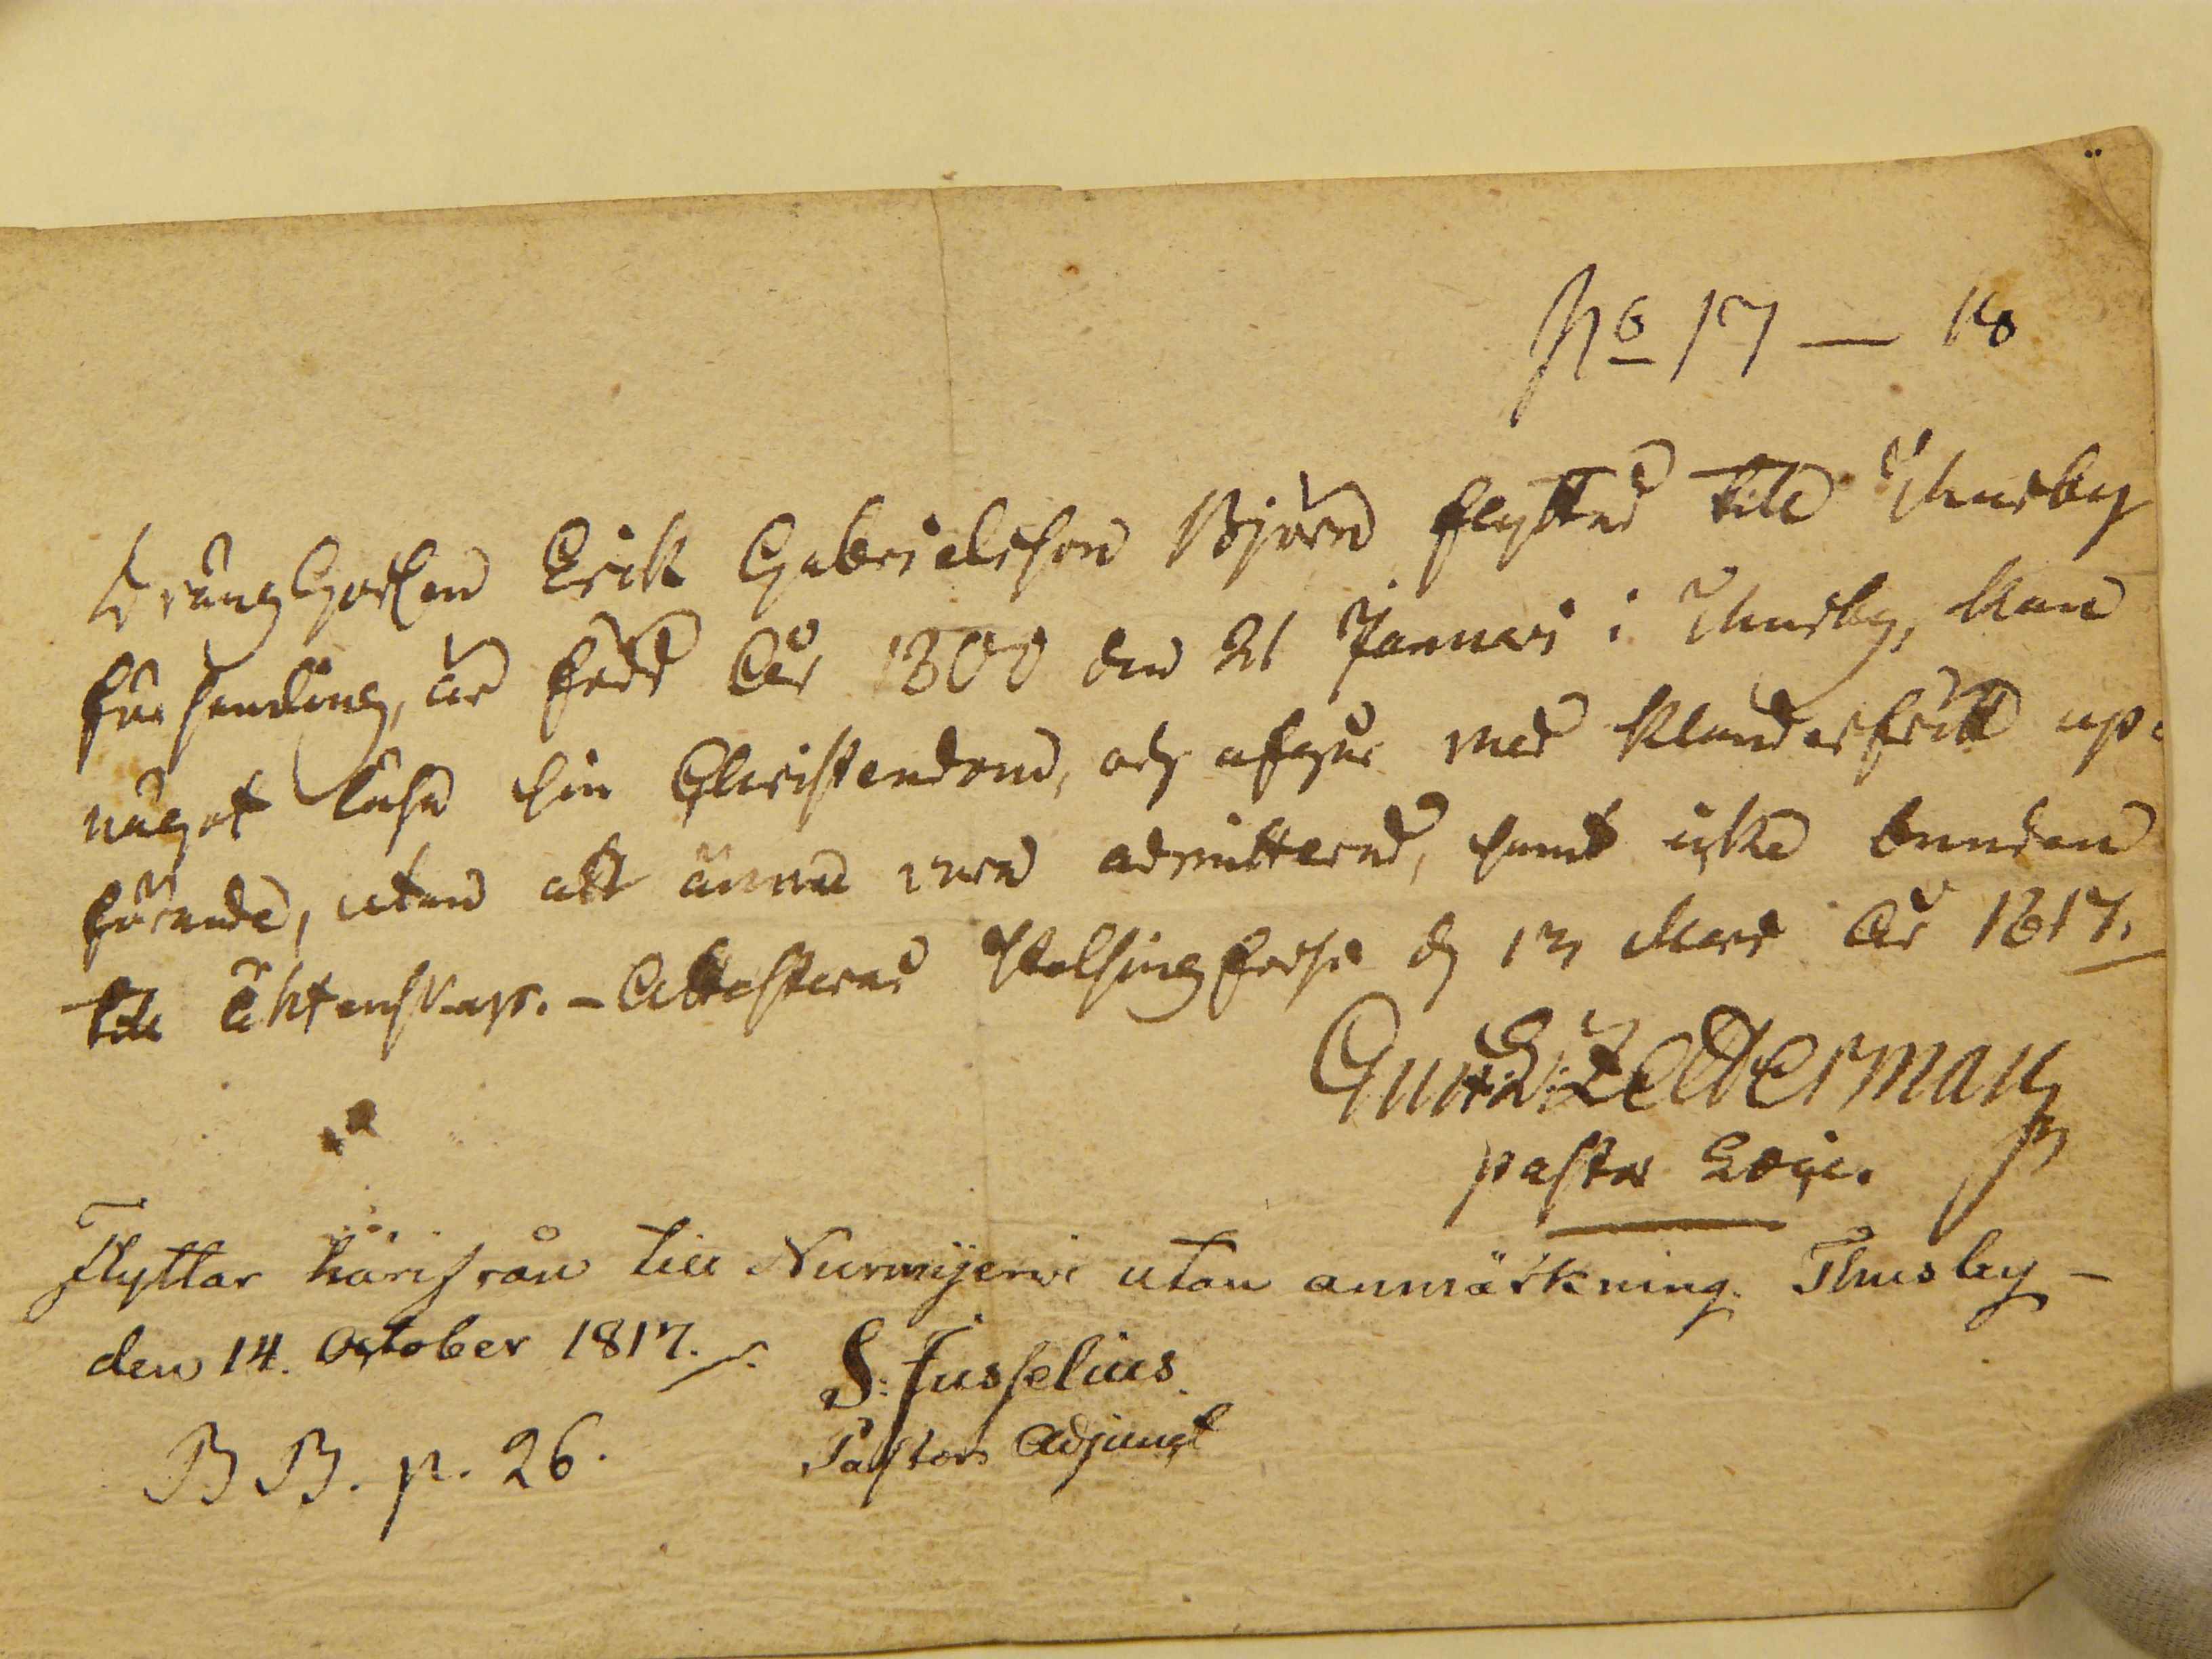 No 17 — 
Dräng Gossen Erik Gabrielsson Björn flyttar till Thusby
församling, är född år 1800 den 21 Januari i Thusby, kan
något läsa sin Christendom, och afgår med klanderfritt up-
förande, utan att ännu vara admitterad, samt icke bunden
till ächtenskap. - Attesteras Helsingfors d 13 Mars år 1817.
Cederman
pastor Loci.
Flyttar härifrån till Nurmijervi utan anmärkning. Thusby -
den 14. October 1817.
S: Jusselius.
Pastors Adjunct
B B. p. 26.